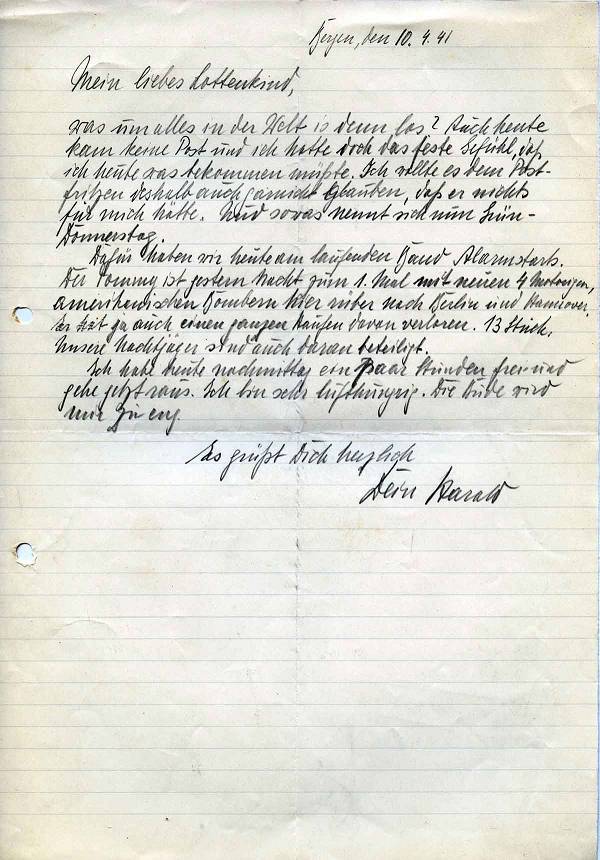 Bergen, den 10.4.41
Mein liebes Lottenkind,
was um alles in der Welt is denn los? Auch heute
kam keine Post und ich hatte doch das feste Gefühl, daß
ich heute was bekommen müßte. Ich wollte es dem Post-
fritzen deshalb auch garnicht glauben, daß er nichts
für mich hatte. Und sowas nennt sich nun Grün-
Donnerstag.
Dafür haben wir heute am laufenden Band Alarmstarts.
Der Tommy ist gestern Nacht zum 1. Mal mit neuen 4 motorigen,
amerikanischen Bombern hier rüber nach Berlin und Hannover.
Er hat ja auch einen ganzen Haufen davon verloren. 13 Stück.
Unsere Nachtjäger sind auch daran beteiligt.
Ich habe heute nachmittag ein paar Stunden frei und
gehe jetzt raus. Ich bin sehr lufthungrig. Die Bude wird
mir zu eng.
Es grüßt Dich herzlich
Dein Harald